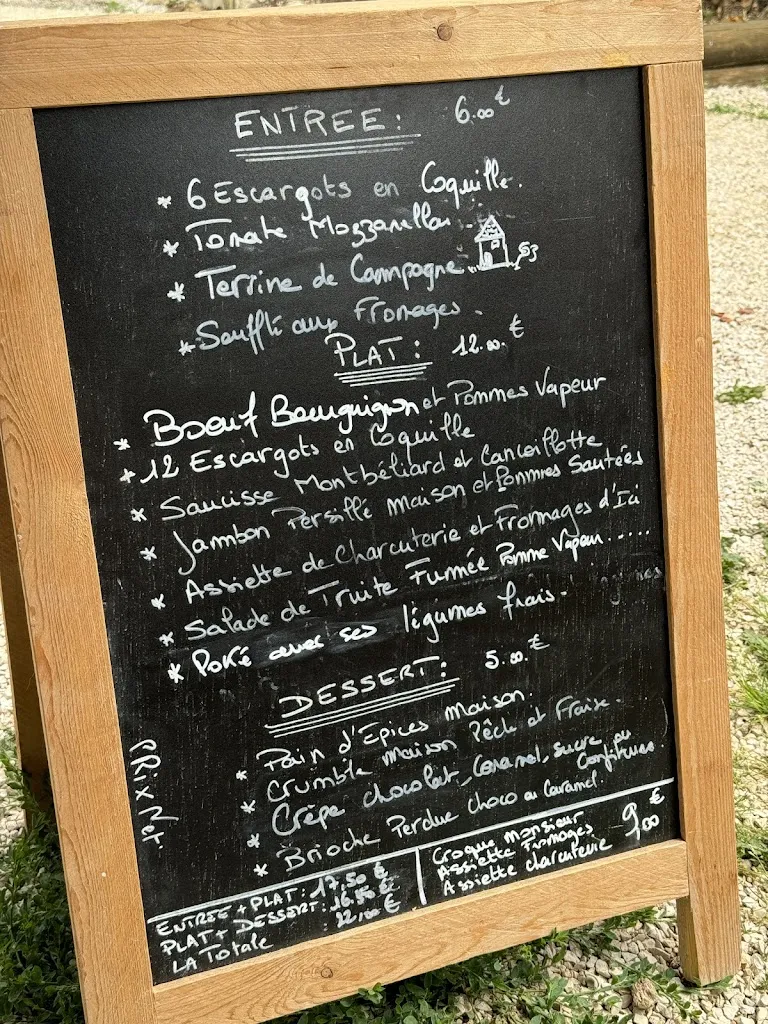 ENTREE : 6.00€
* 6 Escargots en Coquille.
* Tomate Mozzarella.
* Terrine de Campagne
* Soufflé aux Fromages.
PLAT : 12.00.€
* Boeuf Bourguignon et Pommes Vapeur
* 12 Escargots en Coquille
* Saucisse Montbéliard et Cancoillotte
* Jambon Persillé maison et Pommes Sautées
* Assiette de Charcuterie et Fromages d'Ici
* Salade de Truite Fumée Pomme Vapeur.....
* Poké avec ses légumes frais.
DESSERT : 5.00.€
* Pain d'Epices maison.
* Crumble maison Pêche et Fraise.
* Crêpe chocolat, Caramel, sucre, ou Confitures.
* Brioche Perdue choco ou Caramel.
PRIX Net
ENTREE + PLAT : 17,50 €
PLAT + DESSERT : 16.50 €
LA Totale : 22,00 €
Croque Monsieur
Assiette Fromages 9,00€
Assiette charcuterie